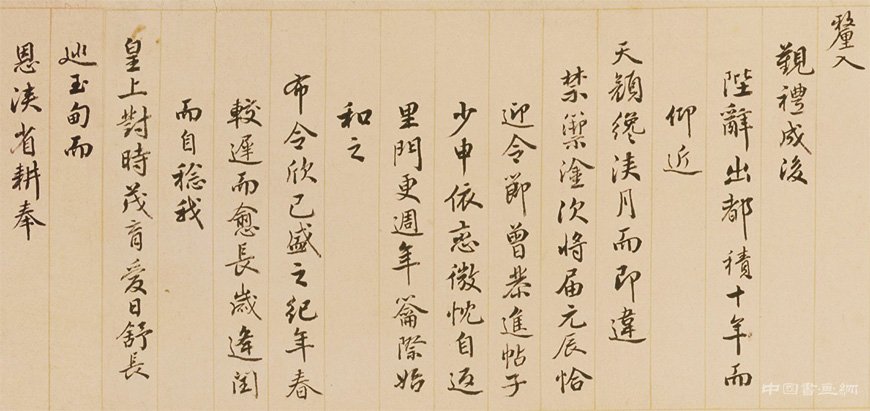 釐入
覲禮成後
陛辭出都積十年而
仰近
天顏纔浹月而即違
禁籞塗次將届元辰恰
迎令節曾恭進帖子
少申依戀微忱自返
里門更週年籥際始
和之
布令欣已盛之紀年春
較遲而愈長歲逢閏
而自稔我
皇上對時茂育愛日舒長
巡玉甸而
恩浹省耕奉
中国书画网